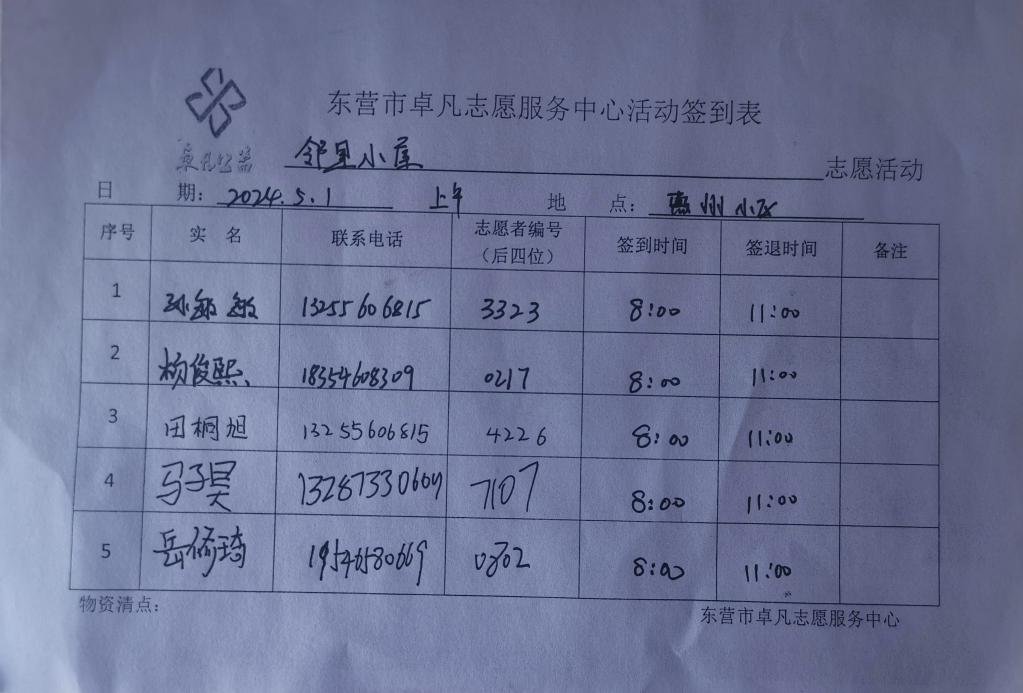 东营市卓凡志愿服务中心活动签到表
卓凡公益
邻里小屋 志愿活动
日 期: 2024.5.1 上午 地 点: 惠州小区
序号 实 名 联系电话 志愿者编号(后四位) 签到时间 签退时间 备注
1 孙敏敏 13255606815 3323 8:00 11:00
2 杨俊熙 18354608309 0217 8:00 11:00
3 田桐旭 13255606815 4226 8:00 11:00
4 马子昊 7107 8:00 11:00
5 岳脩琦 19546580669 0802 8:00 11:00
物资清点:
东营市卓凡志愿服务中心